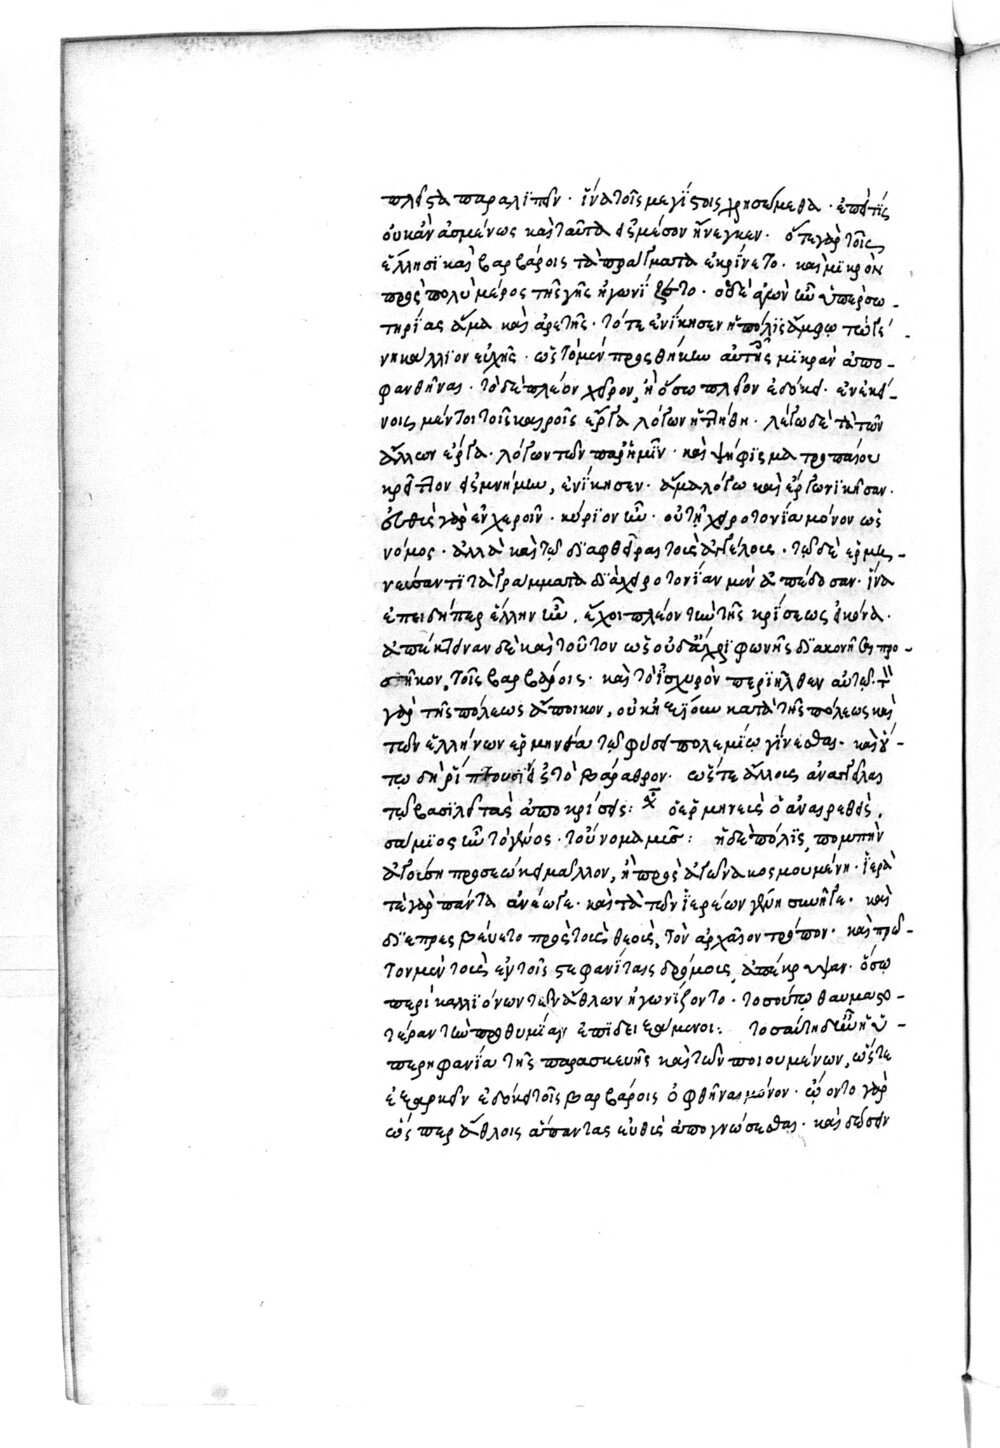 πλεῖστα παραλιπεῖν· ἵνα τοῖς μεγίστοις χρησώμεθα· ἐπεὶ τίς
οὐκ ἂν ἀσμένως καὶ ταῦτα εἰς μέσον ἤνεγκεν· ὅτε γὰρ τοῖς
ἕλλησι καὶ βαρβάροις τὰ πράγματα ἐκρίνετο· καὶ μικρὸν
πρὸς πολὺ μέρος τῆς γῆς ἠγωνίζετο· ὁ δὲ ἀγὼν ἦν ὑπὲρ σω-
τηρίας ἅμα καὶ ἀρετῆς· τότε ἐνίκησεν ἡ πόλις ἄμφω τώ γε
νη κάλλιον εὐχῆς· ὥστε τὸ μὲν προσθήκην αὐτῆς μικρὰν ἀπο-
φανθῆναι· τὸ δὲ πλεῖον χεῖρον, ἢ ὅσῳ πλεῖον ἐδόκει· ἐν ἐκεί-
νοις μέντοι τοῖς καιροῖς ἔργα λόγων ἡττήθη· λέγω δὲ τὰ τῶν
ἄλλων ἔργα· λόγων τῶν παρ' ἡμῖν· καὶ ψήφισμα τροπαίου
κρεῖττον εἰς μνήμην, ἐνίκησεν· ἅμα λόγῳ καὶ ἔργῳ νικῆσαν·
εὐθὺς γὰρ ἐν χεροῖν· κύριον ἦν· οὐ τῇ χειροτονίᾳ μόνον ὡς
νόμος· ἀλλὰ καὶ τῷ διαφθεῖραι τοὺς ἀγγέλους· τῷ δὲ ἑρμη-
νεύσαντι τὰ γράμματα διὰ χειροτονίαν μὲν ἀπέδοσαν· ἵνα
ἐπειδήπερ ἕλλην ἦν, ἔχοι πλέον τι τῆς κρίσεως εἰκόνα·
ἀπέκτειναν δὲ καὶ τοῦτον ὡς οὐδ' ἄχρι φωνῆς διακονῆσαι προ-
σῆκον, τοῖς βαρβάροις· καὶ τὸ ἰσχυρὸν περιῆλθεν αὐτῷ· τὸν
γὰρ τῆς πόλεως ἄποικον, οὐκ ἠξίουν κατὰ τῆς πόλεως καὶ
τῶν ἑλλήνων ἑρμηνέα τῷ φύσει πολεμίῳ γίνεσθαι· καὶ οὕ-
τω δὴ ῥίπτουσιν εἰς τὸ βάραθρον· ὥστε ἄλλους ἀναγγεῖλαι
τῷ βασιλεῖ τὰς ἀποκρίσεις: ὁ ἑρμηνεὺς ὁ ἀναιρεθεὶς,
σάμιος ἦν τὸ γένος· τοὔνομα μῦς: ἡ δὲ πόλις, πομπὴν
ἀγούσῃ προσεῴκει μᾶλλον, ἢ πρὸς ἀγῶνα κοσμουμένῃ· ἱερὰ
τε γὰρ πάντα ἀνέῳγε· καὶ τὰ τῶν ἱερέων γένη συνῆγε· καὶ
διεπρεσβεύετο πρὸς τοὺς θεοὺς, τὸν ἀρχαῖον τρόπον· καὶ πρῶ-
τον μὲν τοὺς ἐν τοῖς στεφανίταις δρόμοις, ἀπέκρυψαν· ὅσῳ
περὶ καλλιόνων τῶν ἄθλων ἠγωνίζοντο· τοσούτῳ θαυμαστο-
τέραν τὴν προθυμίαν ἐπιδειξάμενοι: τοσαύτη δ' ἦν ἡ ὑ-
περηφανία τῆς παρασκευῆς καὶ τῶν ποιουμένων, ὥστε
ἐξαρκεῖν ἐδόκει τοῖς βαρβάροις ὀφθῆναι μόνον· ᾤοντο γὰρ
ὥσπερ ἄθλοις ἅπαντας εὐθὺς ἀπογνώσεσθαι· καὶ δώσειν